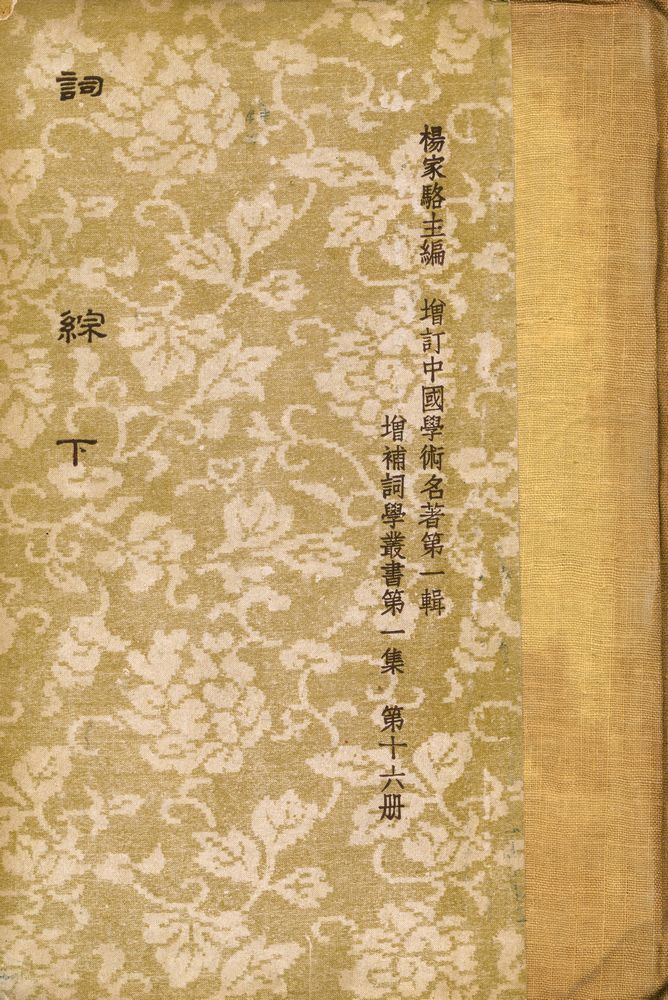 楊家駱主編　增訂中國學術名著第一輯
增補詞學叢書第一集　第十六册
詞綜下